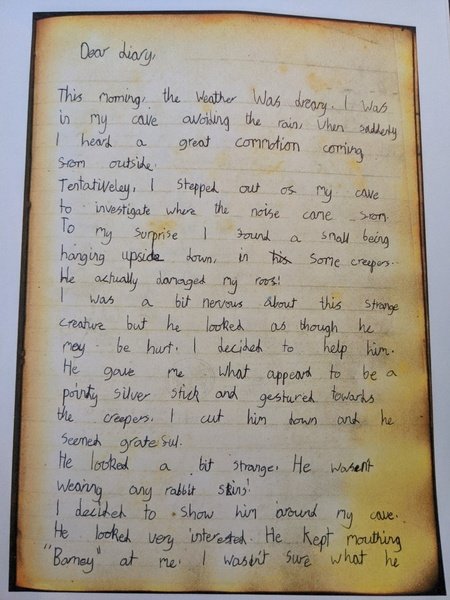 Dear diary,
This morning, the weather was dreary. I was
in my cave avoiding the rain, when suddenly
I heard a great commotion coming
from outside.
Tentativeley, I stepped out of my cave
to investigate where the noise came from.
To my surprise I found a small being
hanging upside down, in some creepers.
He actually damaged my roof!
I was a bit nervous about this strange
creature but he looked as though he
may be hurt. I decided to help him.
He gave me what appeared to be a
pointy silver stick and gestured towards
the creepers. I cut him down and he
seemed grateful.
He looked a bit strange. He wasent
wearing any rabbit skins!
I decided to show him around my cave.
He looked very interested. He kept mouthing
"Barney" at me. I wasn't sure what he